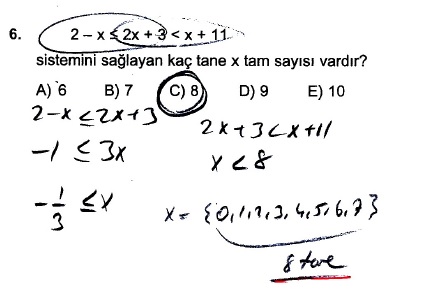 6. 2 – x ≤ 2x + 3 < x + 11
sistemini sağlayan kaç tane x tam sayısı vardır?
A) 6 B) 7 C) 8 D) 9 E) 10
2-x ≤ 2x+3
2x+3 < x+11
-1 ≤ 3x
x < 8
-1/3 ≤ x
x = {0,1,2,3,4,5,6,7}
8 tane